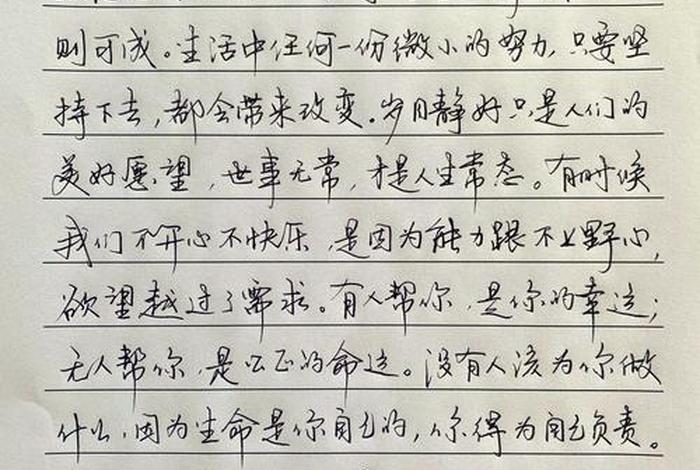 则可成。生活中任何一份微小的努力,只要坚
持下去,都会带来改变。岁月静好只是人们的
美好愿望,世事无常,才是人生常态。有时候
我们不开心不快乐,是因为能力跟不上野心,
欲望越过了需求。有人帮你,是你的幸运;
无人帮你,是公正的命运。没有人该为你做
什么,因为生命是你自己的,你得为自己负责。